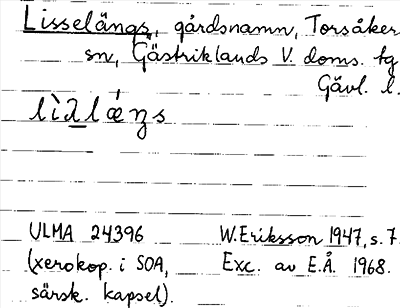 Lisselängs, gårdsnamn, Torsåker
sn, Gästriklands V. doms. tg
Gävl. l.
lìλlǽŋs
ULMA 24396
(xerokop. i SOA,
särsk. kapsel).
W. Eriksson 1947, s. 7.
Exc. av E.Å. 1968.